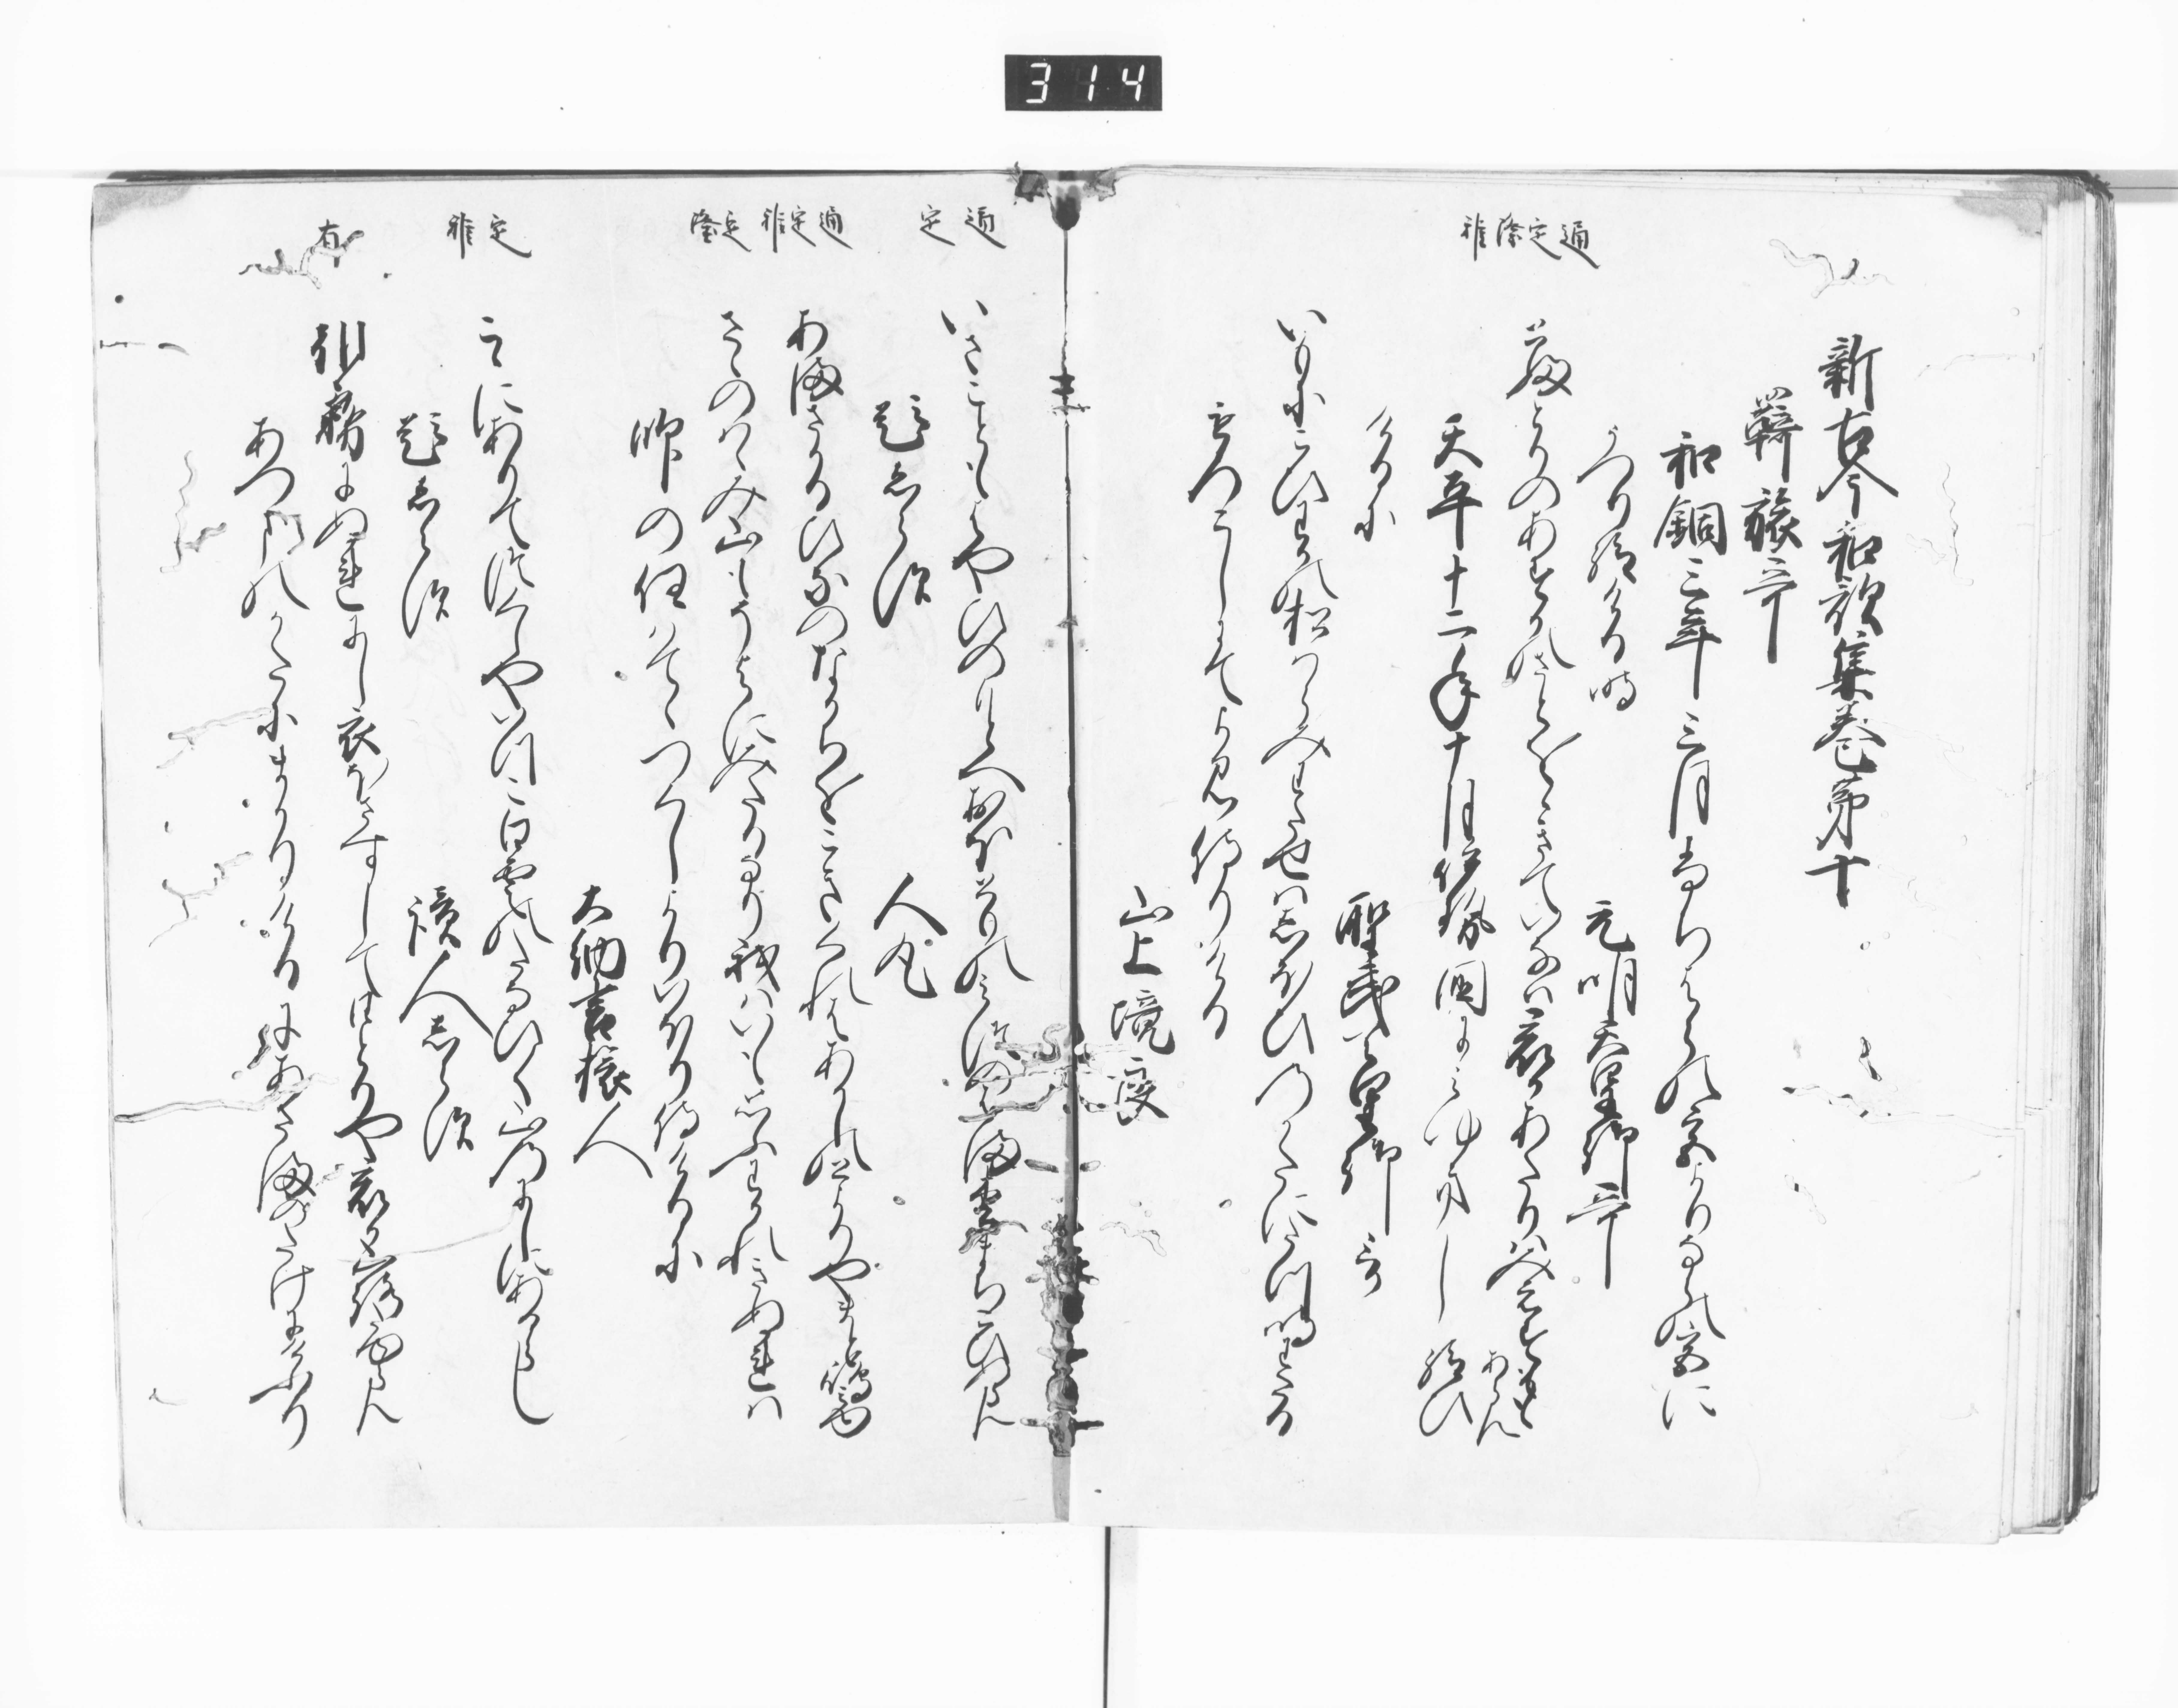 314
新古今和歌集巻第十
羇旅哥
和銅三年三月ふちはらの宮よりならの宮に
うつり給ける時
元明天皇御哥
通定隆雅
とふとりのあすかのさとをゝきていなは君かあたりはみえすかも
あらん
天平十二年十月伊勢国にみゆきし給ひ
けるに
聖武天皇御哥
いもにこひわかの松はらみわたせはしほひのかたにたつ鳴わたる
もろこしにてよみ侍りける
山上憶良
通定
いさこともはやひのもとへおほとものみつのはま松まちこひぬらん
題しらす
人丸
通定雅
あまさかるひなのなかちをこきくれはあかしのとよりやまと嶋みゆ
隆定
さゝのはゝみ山もそよにみたるなり我はいもおもふわかれきぬれは
帥の任はてゝつくしよりのほり侍けるに
大納言旅人
定雅
こゝにありてつくしやいつこ白雲のたなひく山のにしにあるらし
題しらす
読人しらす
有
朝霧にぬれにし衣ほさすしてひとりや君か山路こゆらん
あつまのかたにまかりけるにあさまのたけにけふり